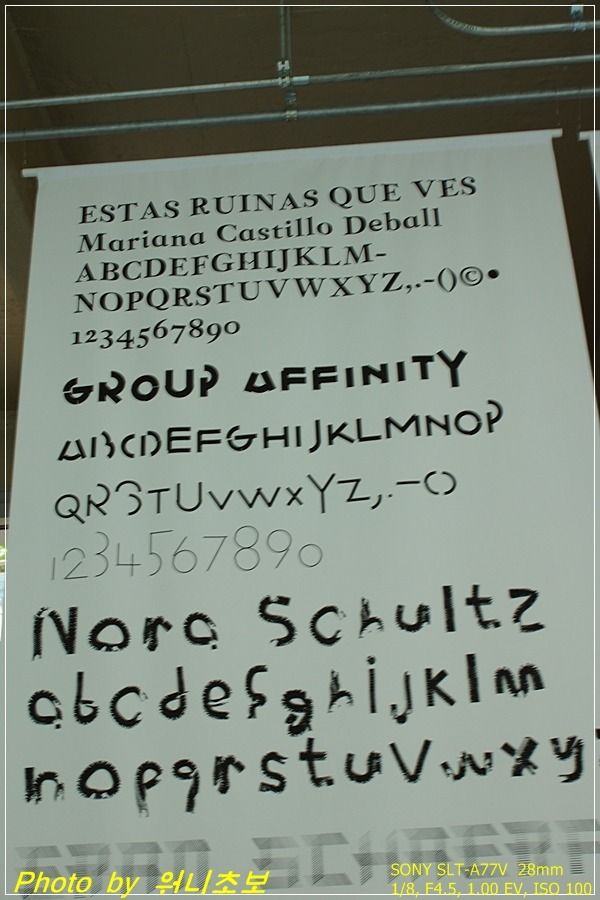 ESTAS RUINAS QUE VES
Mariana Castillo Deball
ABCDEFGHIJKLM-
NOPQRSTUVWXYZ,.-()©•
1234567890
GROUP AFFINITY
ABCDEFGHIJKLMNOP
QRSTUVWXYZ,.-()
1234567890
Nora Schultz
abcdefghijklm
nopqrstuvwxyz
Photo by 워니초보
SONY SLT-A77V 28mm
1/8, F4.5, 1.00 EV, ISO 100